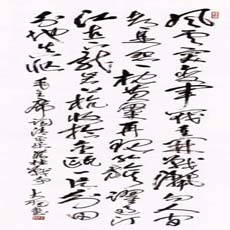 风云突变军阀重开战洒向人间
都是怨一枕黄粱再现红旗跃过汀
江直下龙岩上杭收拾金瓯一片分田
分地真忙 毛主席词清平乐蒋桂战争